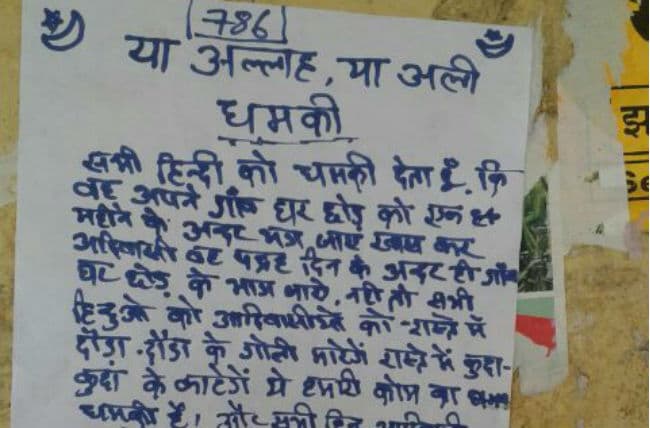 786
या अल्लाह, या अली
धमकी
सभी हिन्दी को धमकी देता हूँ. कि
वह अपने गाँव घर छोड़ को एक
महीने के अन्दर भाग जाए खास कर
आदिवासी वह पन्द्रह दिन के अन्दर ही गाँव
घर छोड़ के भाग जाये, नही तो सभी
हिन्दुओ को आदिवासीओ को रास्ते में
दौड़ा-दौड़ा के गोली मारेगें रास्ते में कुदा-
कुदा के काटेगें ये हमारी कोम का
धमकी है। और सभी
झ